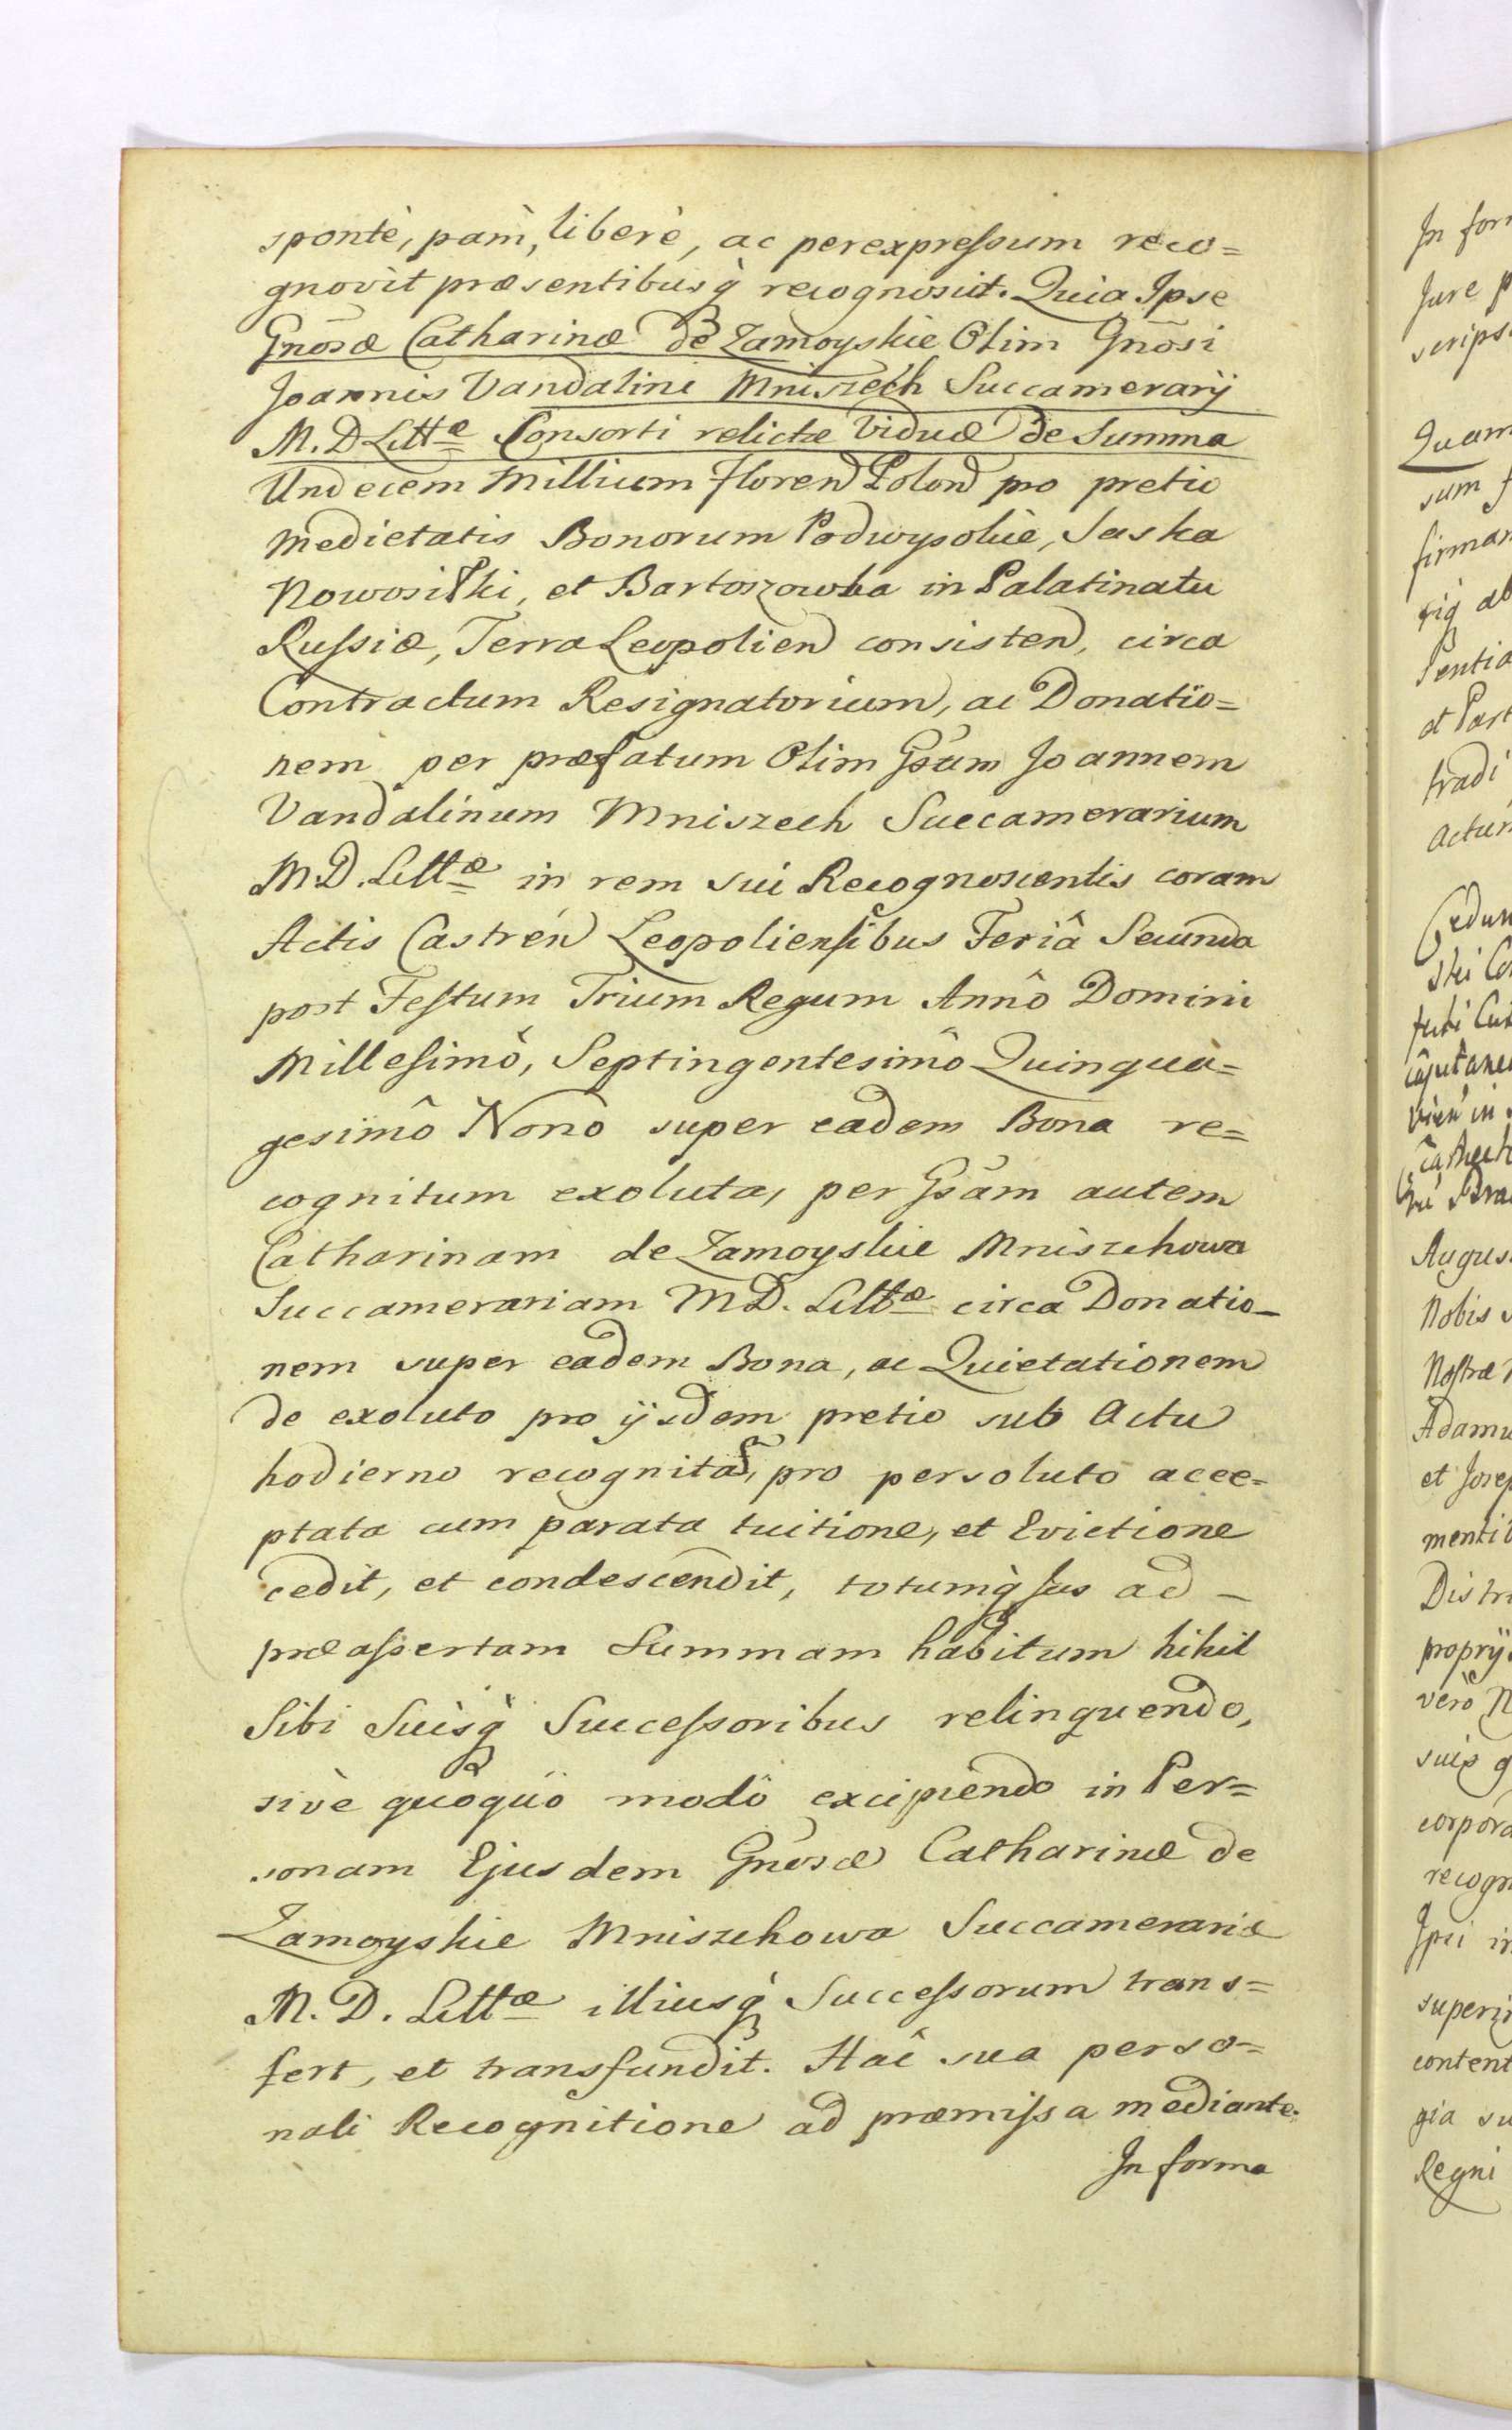 sponte, pam̀, liberè, ac per expressum reco=
gnovit præsentibusq̀ recognoscit. Quia Ipse
Gnosæ Catharinæ de Zamoyskie Olim Gnōsi
Joannis Vandalini Mniszech Succamerarij
M. D. Littæ Consorti relictæ Viduæ de Summa
Undecem Millium floren Polon pro pretio
Medietatis Bonorum Podwysokie, Saska
Nowosiłki, et Bartoszowka in Palatinatu
Russiæ, Terra Leopolien consisten, circa
Contractum Resignatorium, ac Donatio=
nem per præfatum Olim Gsum Joannem
Vandalinum Mniszech Succamerarium
M.D. Littæ in rem sui Recognoscentis coram
Actis Castren Leopoliensibus Feriâ Secunda
post Festum Trium Regum Annô Domini
Millesimô, Septingentesimô Quinqua=
gesimô Nono super eadem Bona re=
cognitum exoluta, per Gsam autem
Catharinam de Zamoyskie Mniszchowa
Succamerariam M D. Littæ circa Donatio=
nem super eadem Bona, ac Quietationem
de exoluto pro ijsdem pretio sub Actu
hodierno recognitas, pro persoluto acce=
ptata cum parata tuitione, et Evictione
cedit, et condescendit, totumq̀ Jus ad
præassertam Summam habitum hihil
Sibi Suisq̀ Successoribus relinquendo,
sivè quoquo modô excipiendo in Per=
sonam Ejusdem Gnosæ Catharinæ de
Zamoyskie Mniszchowa Succamerariæ
M. D. Littæ illiusq̀ Successorum trans=
fert, et transfundit. Hac sua perso=
nali Recognitione ad præmissa mediante.
In forma
In for
Jure p
scrips
Quam
sum f
firmar
rıq ab
Sentia
at Part
tradi
actum
Cedun
August
Nobis s
Nostræ
Adamu
et Josep
mentib
Distri
proprij
verò N
suis q
corpora
recogn
Ipsi in
superi
content
gia su
Regni